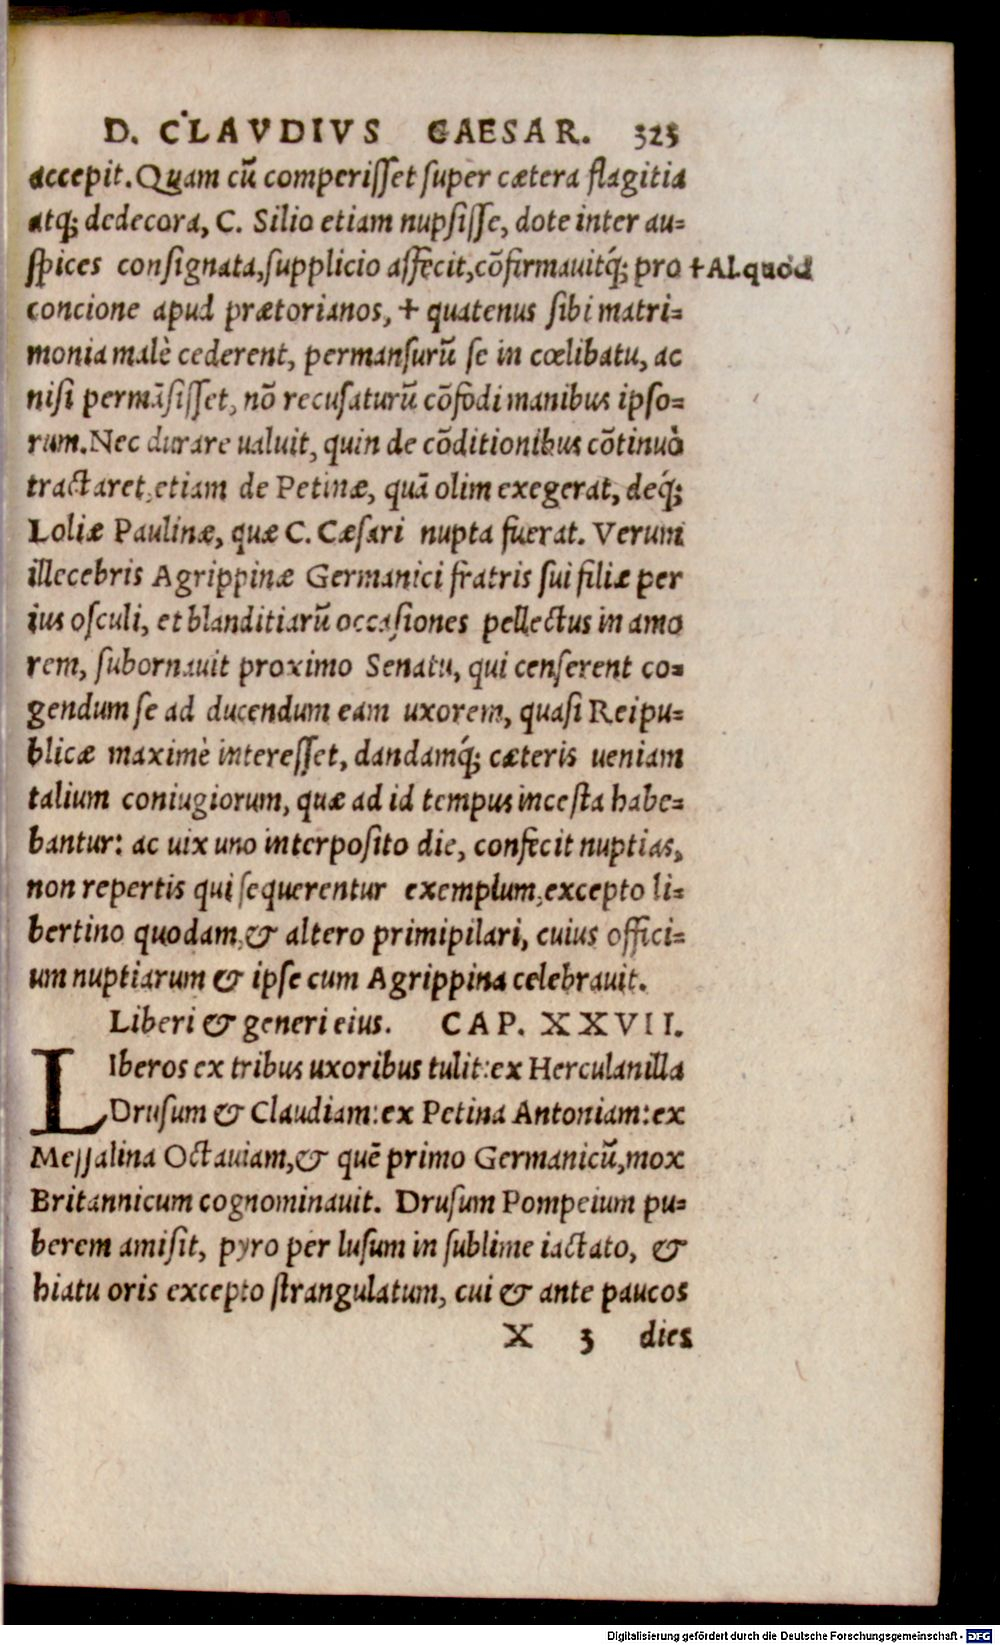 D. CLAVDIVS CAESAR. 325
accepit. Quam cū comperiſſet ſuper cætera flagitia
atq; dedecora, C. Silio etiam nupſiſſe, dote inter au=
ſpices conſignata, ſupplicio affecit, cōfirmauitq́; pro †Al. quod
concione apud prætorianos, † quatenus ſibi matri=
monia malè cederent, permanſurū ſe in cœlibatu, ac
niſi permāſiſſet, nō recuſaturū cōfodi manibus ipſo=
rum. Nec durare ualuit, quin de cōditionibus cōtinuò
tractaret, etiam de Petinæ, quā olim exegerat, deq́;
Loliæ Paulinæ, quæ C. Cæſari nupta fuerat. Verum
illecebris Agrippinæ Germanici fratris ſui filiæ per
ius oſculi, et blanditiarū occaſiones pellectus in amo
rem, ſubornauit proximo Senatu, qui cenſerent co=
gendum ſe ad ducendum eam uxorem, quaſi Reipu=
blicæ maximè intereſſet, dandamq́; cæteris ueniam
talium coniugiorum, quæ ad id tempus inceſta habe=
bantur: ac uix uno interpoſito die, confecit nuptias,
non repertis qui ſequerentur exemplum, excepto li=
bertino quodam, & altero primipilari, cuius offici=
um nuptiarum & ipſe cum Agrippina celebrauit.
Liberi & generi eius. CAP. XXVII.
LIberos ex tribus uxoribus tulit: ex Herculanilla
Druſum & Claudiam: ex Petina Antoniam: ex
Meſſalina Octauiam, & quē primo Germanicū, mox
Britannicum cognominauit. Druſum Pompeium pu=
berem amiſit, pyro per luſum in ſublime iactato, &
hiatu oris excepto ſtrangulatum, cui & ante paucos
X 3 dies
Digitalisierung gefördert durch die Deutsche Forschungsgemeinschaft - DFG